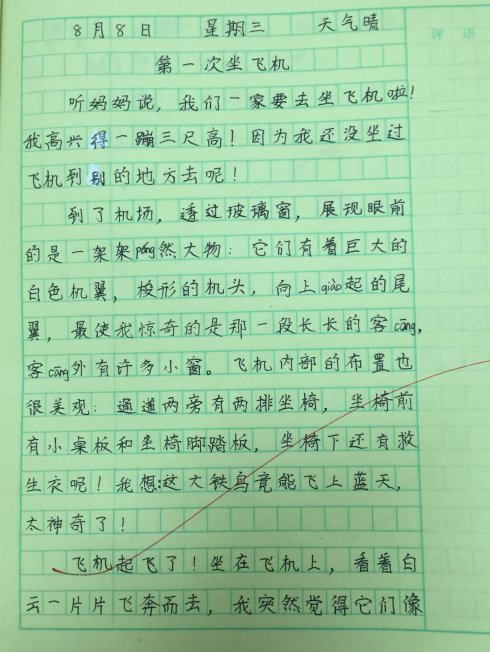 评 语
8月8日 星期三 天气晴
第一次坐飞机
听妈妈说，我们一家要去坐飞机啦！
我高兴得一蹦三尺高！因为我还没坐过
飞机到别的地方去呢！
到了机场，透过玻璃窗，展现眼前
的是一架架páng然大物：它们有着巨大的
白色机翼，梭形的机头，向上qiào起的尾
翼，最使我惊奇的是那一段长长的客cāng，
客cāng外有许多小窗。飞机内部的布置也
很美观：通道两旁有两排坐椅，坐椅前
有小桌板和坐椅脚踏板，坐椅下还有救
生衣呢！我想：这大铁鸟竟能飞上蓝天，
太神奇了！
飞机起飞了！坐在飞机上，看着白
云一片片飞奔而去，我突然觉得它们像